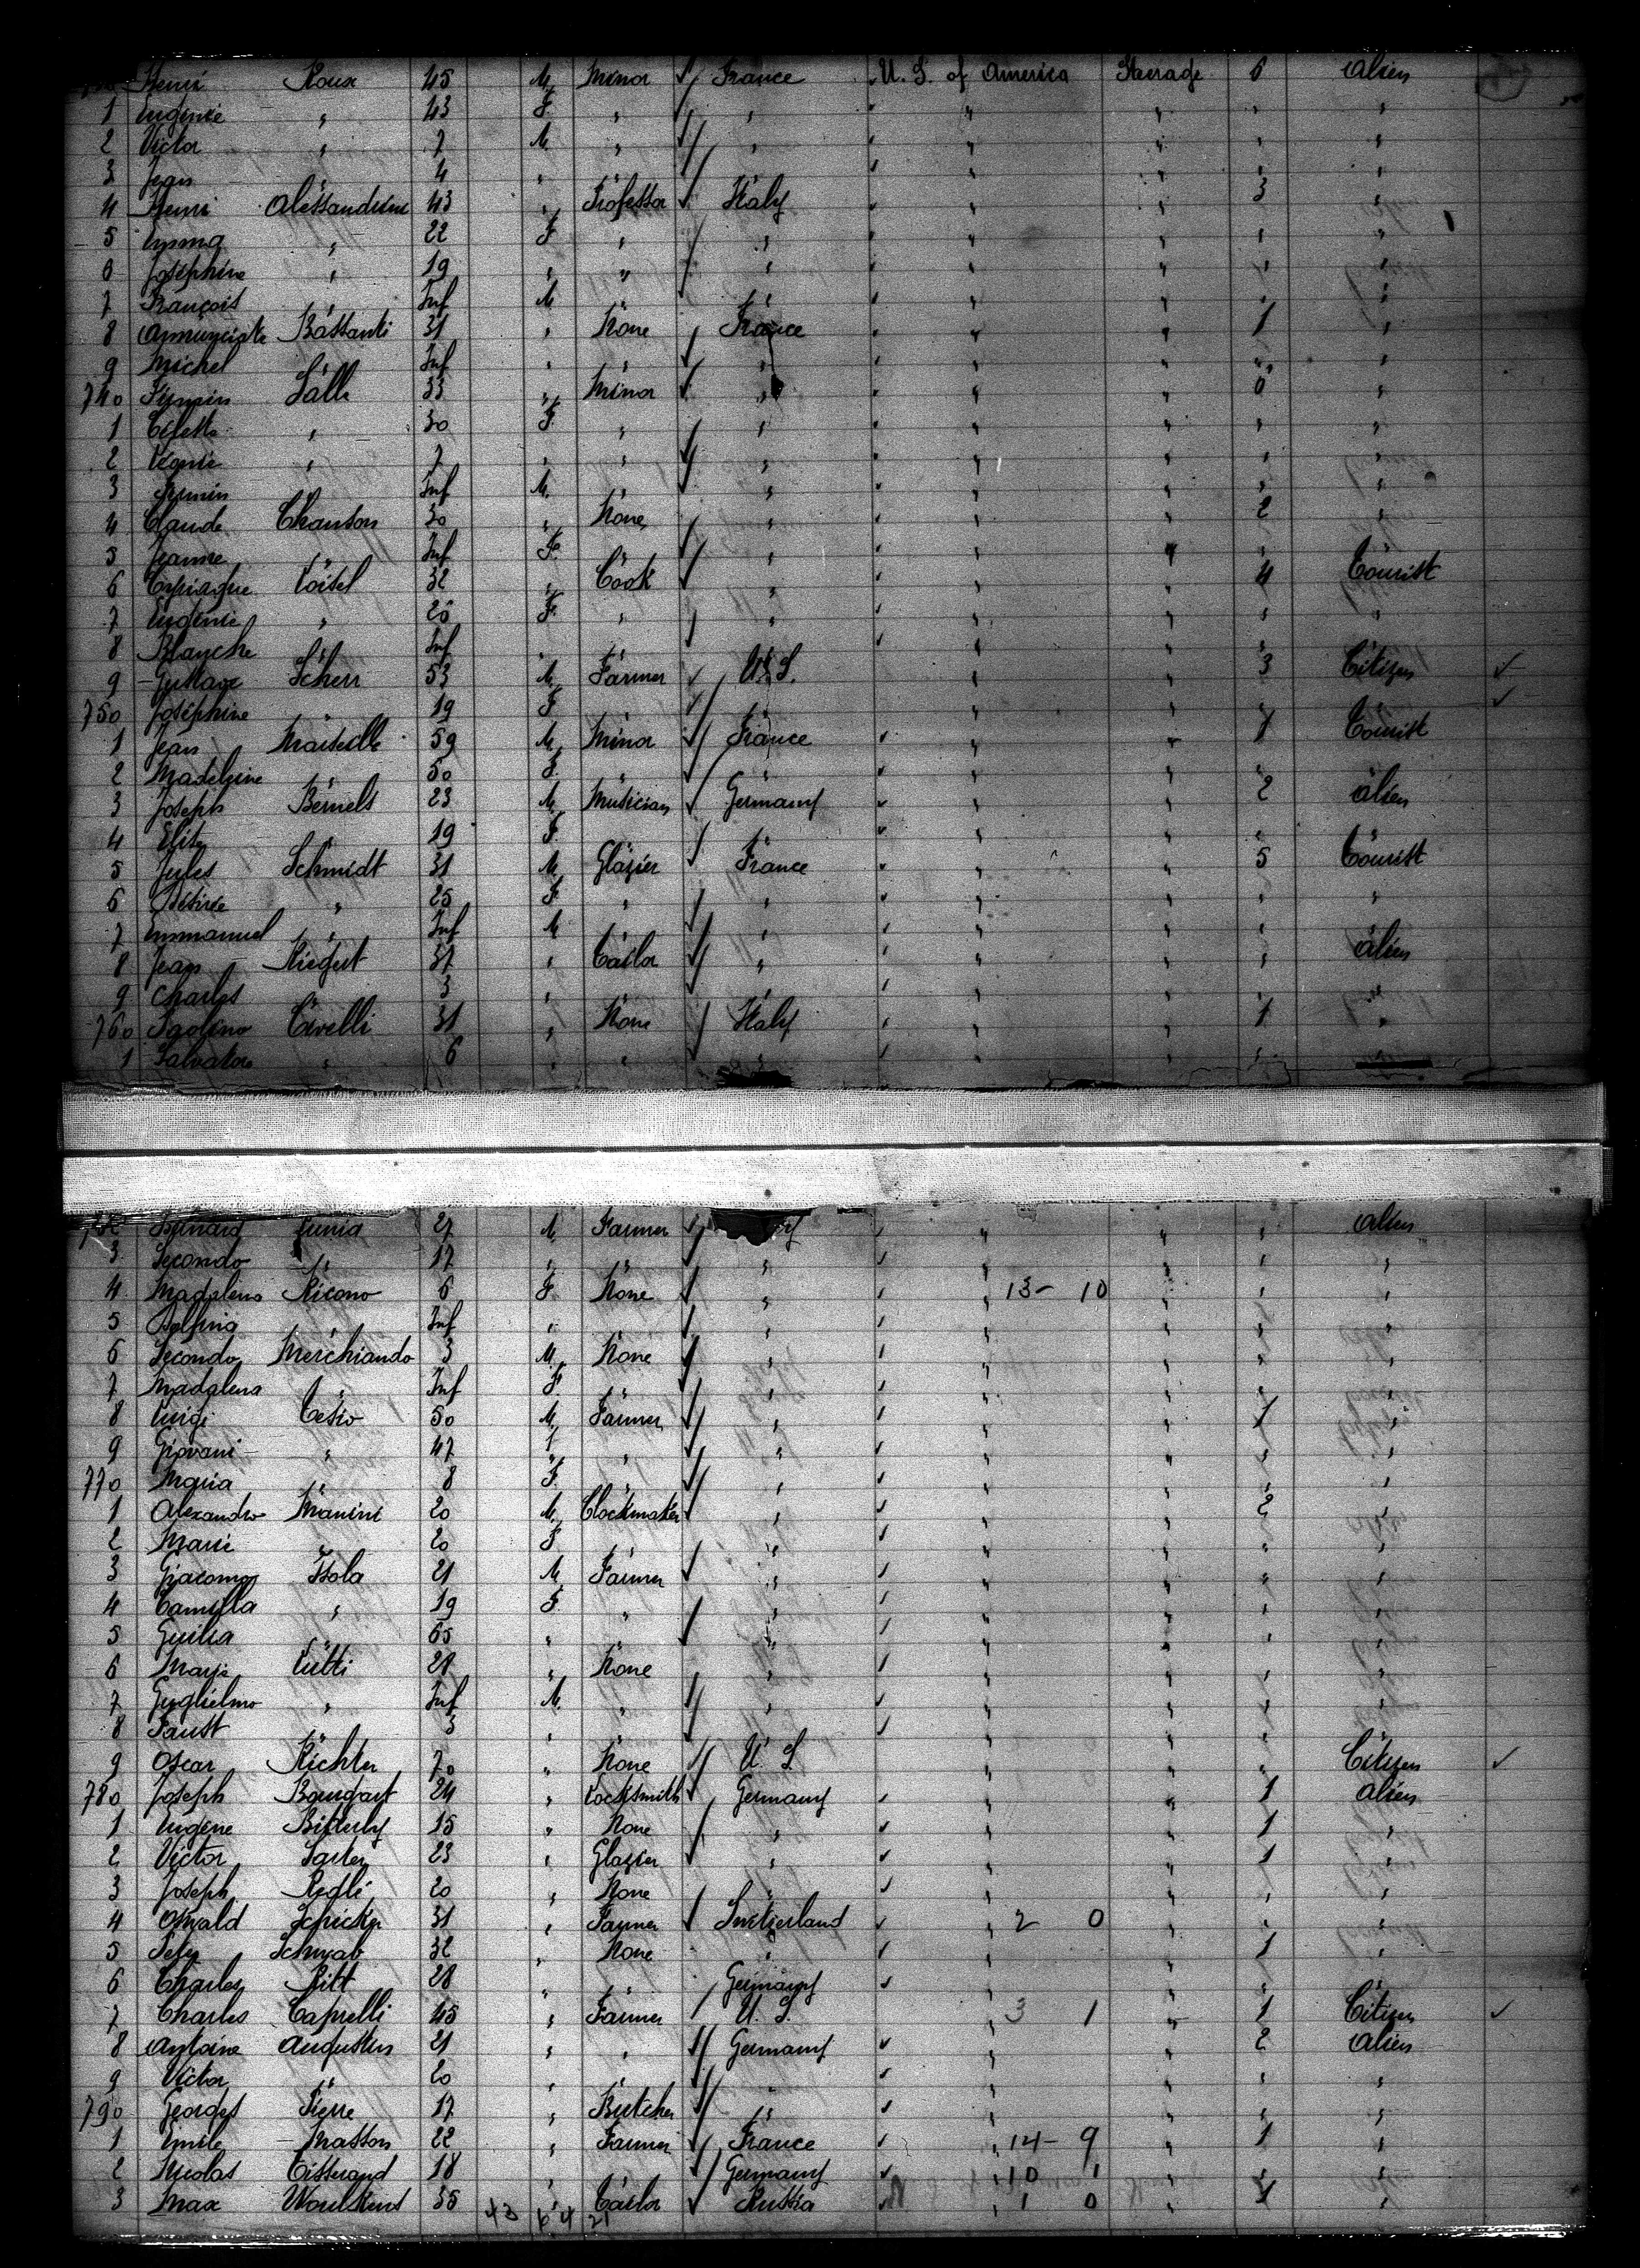 Henri Roux 45 M. Minor France U. S. of America Steerage 6 Alien
1 Eugénie " 43 F. " " " " " "
2 Victor " 7 M. " " " " " "
3 Jean " 4 " " " " " " "
4 Henri 43 " Professor Italy " " 3 "
5 Emma " 22 F. " " " " " "
6 Joséphine " 19 " " " " " " "
7 François " Inf M. " " " " " "
8 Bassanti 31 " None France " " 1 "
9 Michel " Inf " " " " " " "
740 Firmin Salle 33 " Minor " " " 6 "
1 " 30 F. " " " " " "
2 Léonie " 7 " " " " " " "
3 Firmin " Inf M. " " " " " "
4 Claude Chanson 30 " None " " " 2 "
5 Jeanne " Inf F. " " " " " "
6 Loisel 32 " Cook " " " 4 Tourist
7 Eugénie " 26 F. " " " " " "
8 Blanche " Inf " " " " " " "
9 Gustave Scherr 53 M. Farmer U. S. " " 3 Citizen
750 Joséphine " 19 F. " " " " " "
1 Jean 59 M. Minor France " " 1 Tourist
2 Madeleine " 50 F. " " " " " "
3 Joseph Bernels 23 M. Musician Germany " " 2 Alien
4 " 19 F. " " " " " "
5 Jules Schmidt 31 M. Glazier France " " 5 Tourist
6 Désirée " 25 F. " " " " " "
7 Emmanuel " Inf M. " " " " " "
8 Jean 31 " Tailor " " " " Alien
9 Charles " 3 " " " " " " "
760 Civelli 31 " None Italy " " 1 "
1 Salvatore " 6 " " " " " " "
27 M. Farmer " " " Alien
3 Secondo " 17 " " " " " " "
4 Madalena Ricono 6 F. None " 13- 10 " " "
5 Delfina " Inf " " " " " " "
6 Secondo Merchiando 3 M. None " " " " "
7 Madalena " Inf F. " " " " " "
8 Luigi Cesio 50 M. Farmer " " " 1 "
9 Giovani " 47 " " " " " " "
770 Maria " 8 F. " " " " " "
1 Alexandro Manini 20 M. Clockmaker " " " 2 "
2 Marie " 20 F. " " " " " "
3 Giacomo Isola 21 M. Farmer " " " " "
4 Camilla " 19 F. " " " " " "
5 Guilia " 65 " " " " " " "
6 Marie Lutti 28 " None " " " " "
7 Guglielmo " Inf M. " " " " " "
8 Faust " 3 " " " " " " "
9 Oscar Richter 70 " None U. S. " " " Citizen
780 Joseph Bomgart 24 " Locksmith Germany " " 1 Alien
1 Eugène Bitterly 15 " None " " " 1 "
2 Victor Sarter 23 " Glazier " " " 1 "
3 Joseph Redli 20 " None " " " " "
4 Oswald 31 " Farmer Switzerland 2 0 " " "
5 Schwab 32 " None " " " 1 "
6 Charles Ritt 28 " " Germany " " " "
7 Charles Caprelli 45 " Farmer U. S. 3 1 " 1 Citizen
8 Antoine Augustin 21 " " Germany " " 2 Alien
9 Victor " 20 " " " " " " "
790 Georges Pierre 17 " Butcher " " " " "
1 Emile Masson 22 " Farmer France 14- 9 " 1 "
2 Nicolas 18 " " Germany 10 1 " " "
3 Max 35 " Tailor Russia 1 0 " 1 "
43 64 21